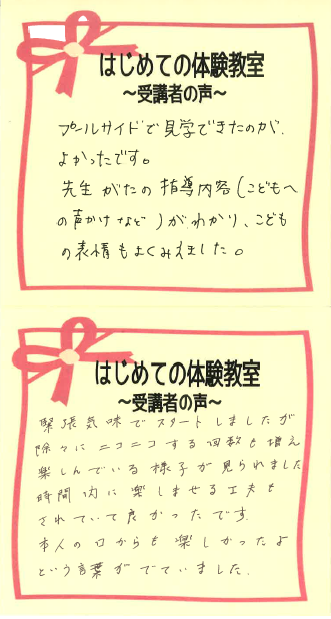 はじめての体験教室
~受講者の声~
プールサイドで見学できたのが、
よかったです。
先生がたの指導内容(こどもへ
の声かけなど)がわかり、こども
の表情もよくみえました。
はじめての体験教室
~受講者の声~
緊張気味でスタートしましたが
除々にニコニコする回数も増え
楽しんでいる様子が見られました
時間内に楽しませる工夫も
されていて良かったです。
本人の口からも楽しかったよ
という言葉がでていました。